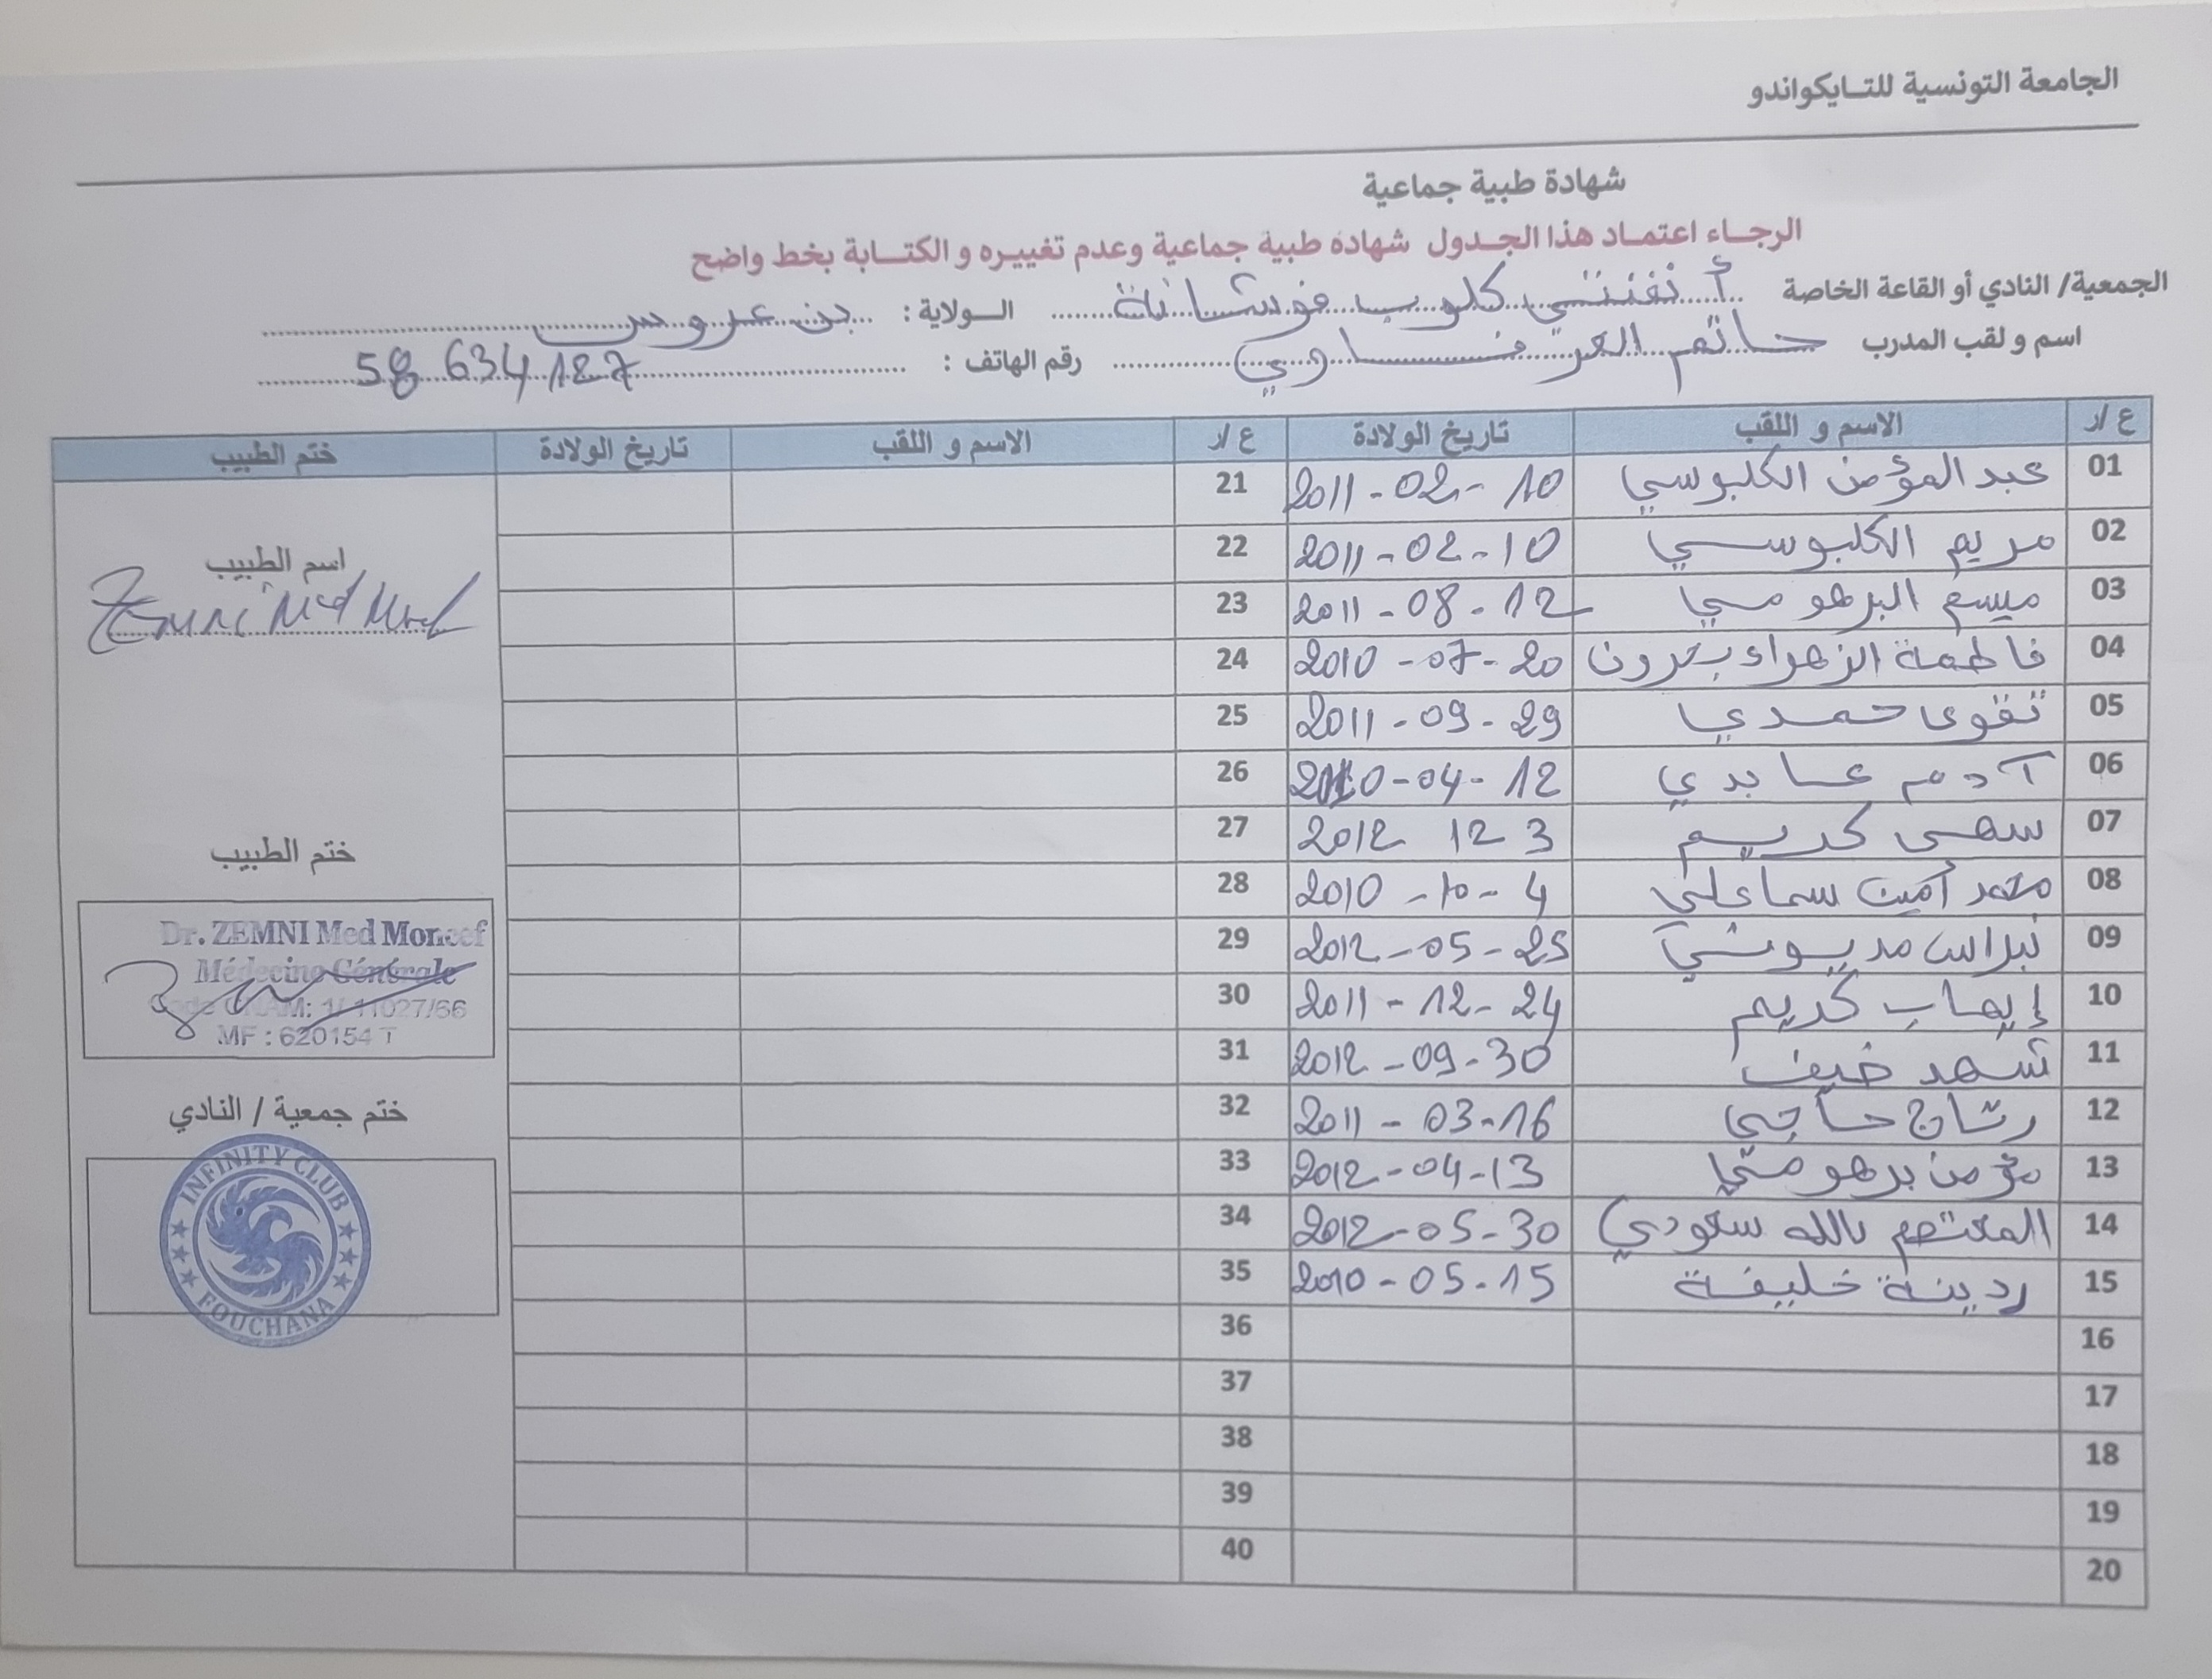 الجامعة التونسية للتـايكواندو
شهادة طبية جماعية
الرجـاء اعتمـاد هذا الجـدول شهادة طبية جماعية وعدم تغييـره و الكتـابة بخط واضح
الجمعية/ النادي أو القاعة الخاصة أنفنتي كلوب فوشانة السـولاية : بن عروس
اسم و لقب المدرب حاتم العرفاوي رقم الهاتف : 58 634 187
ع /ر الاسم و اللقب تاريخ الولادة ع /ر الاسم و اللقب تاريخ الولادة ختم الطبيب
01 عبد المؤمن الكلبوسي 2011-02-10 21
02 مريم الكلبوسي 2011-02-10 22
03 ميسم البرهومي 2011-08-12 23
04 فاطمة الزهراء 2010-07-20 24
05 تقوى حمدي 2011-09-29 25
06 آدم عابدي 2010-04-12 26
07 سهى كريم 2012 12 3 27
08 محمد أمين سماعلي 2010-10-4 28
09 نبراس مديوني 2012-05-25 29
10 إيهاب كريم 2011-12-24 30
11 شهد ضيف 2012-09-30 31
12 رتاج حاجي 2011-03-16 32
13 مؤمن برهومي 2012-04-13 33
14 المعتصم بالله سعودي 2012-05-30 34
15 ردينة خليفة 2010-05-15 35
16 36
17 37
18 38
19 39
20 40
اسم الطبيب
Zemni Med
ختم الطبيب
Dr. ZEMNI Med Moncef
Médecine Générale
Code CNAM: 1/11027/66
MF : 620154 T
ختم جمعية / النادي
INFINITY CLUB
FOUCHANA